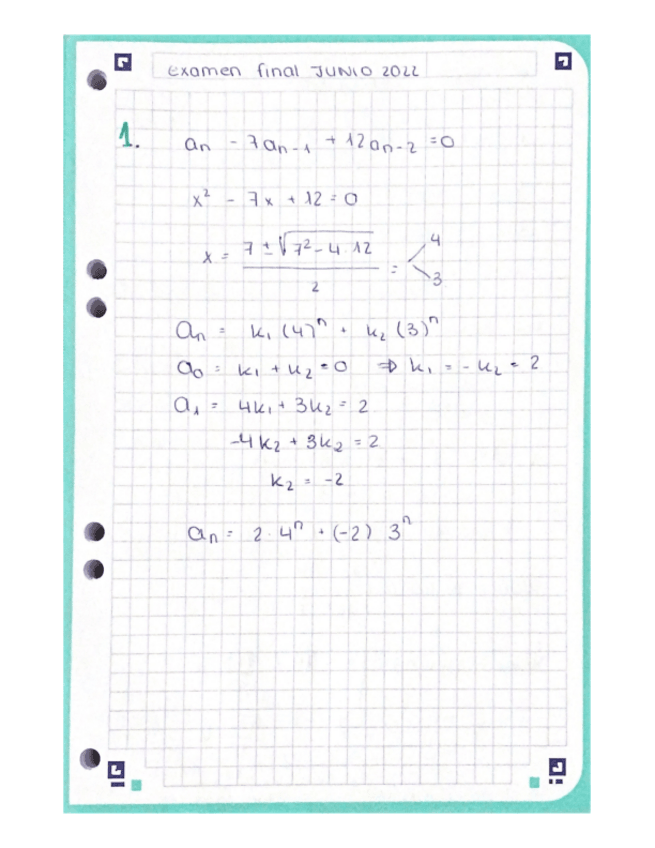 Examen final JUNIO 2022
1. aₙ - 7aₙ₋₁ + 12aₙ₋₂ = 0
x² - 7x + 12 = 0
x = (7 ± √(7² - 4·12)) / 2 = < 4 3
aₙ = k₁(4)ⁿ + k₂(3)ⁿ
a₀ = k₁ + k₂ = 0 ⇒ k₁ = -k₂ = 2
a₁ = 4k₁ + 3k₂ = 2
-4k₂ + 3k₂ = 2
k₂ = -2
aₙ = 2·4ⁿ + (-2) 3ⁿ